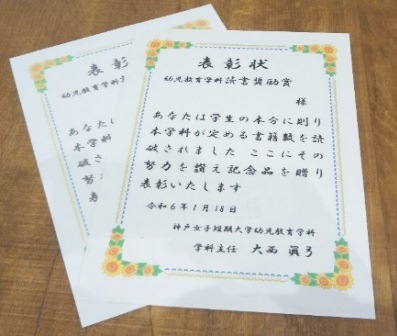 表彰状
幼児教育学科読書奨励賞
様
あなたは学生の本分に則り
本学科が定める書籍数を読
破されました ここにその
努力を讃え記念品を贈り
表彰いたします
令和6年1月18日
神戸女子短期大学幼児教育学科
学科主任 大西 眞弓
表彰
幼児教育学科
あなた
本学科
破され
努力
表